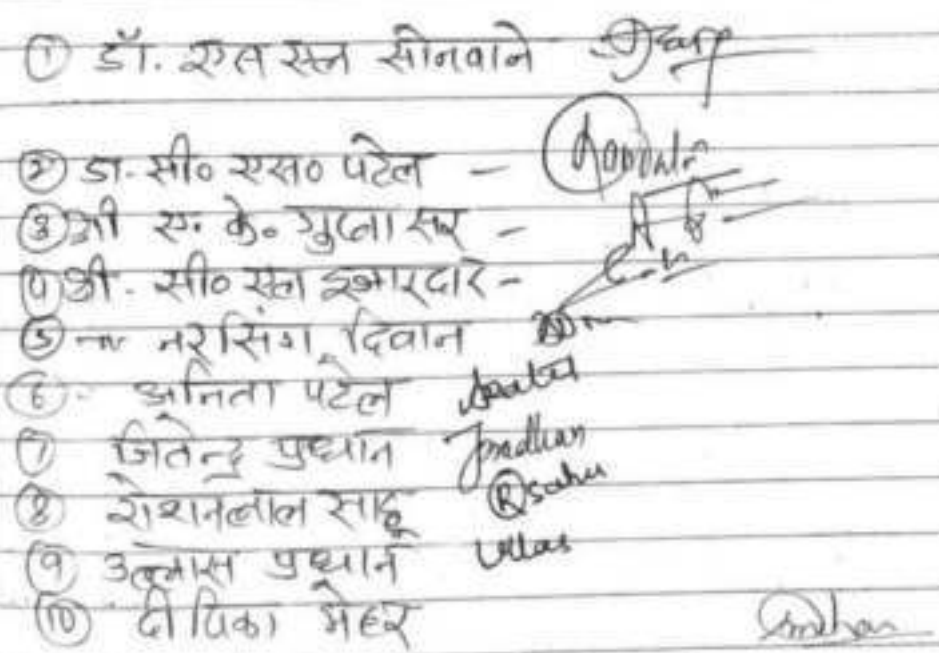 ① डॉ. एल एस सोनवाने
② डा. सी० एस० पटेल –
③ श्री ए. के. गुप्ता सर –
④ श्री. सी० एल इजारदार –
⑤ नरसिंग दिवान
⑥ अनिता पटेल
⑦ जितेन्द्र प्रधान Jpradhan
⑧ रोशनलाल साहू Rsahu
⑨ उल्लास प्रधान Ullas
⑩ दीपिका मेहर